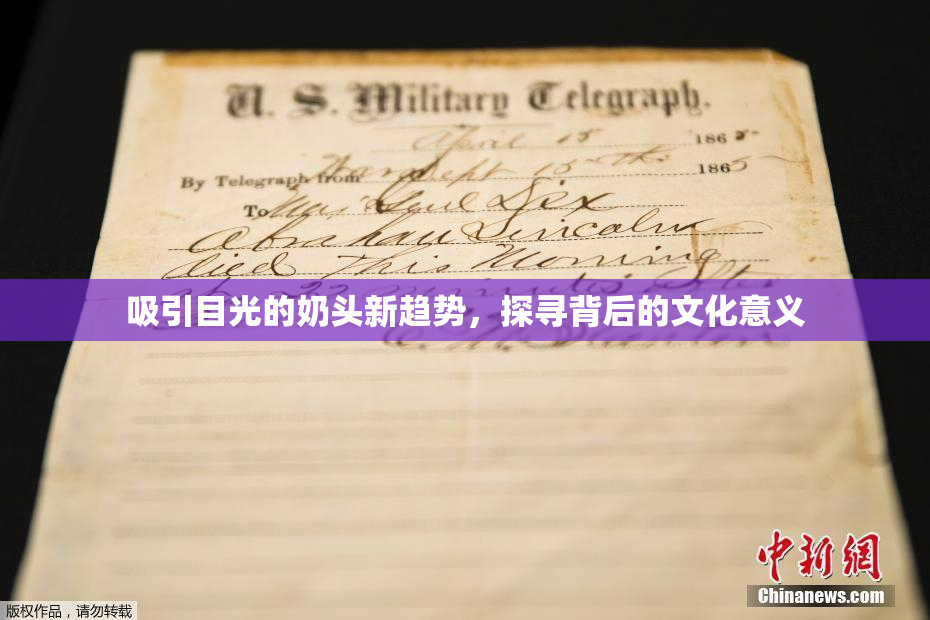 U. S. Military Telegraph.
April 15 1865
By Telegraph from War Dept 15th 1865
To Maj Genl Dix
Abraham Lincoln
died This Morning
at 22 minutes after
吸引目光的奶头新趋势，探寻背后的文化意义
E. M. Stanton
中新網
Chinanews.com
版权作品，请勿转载